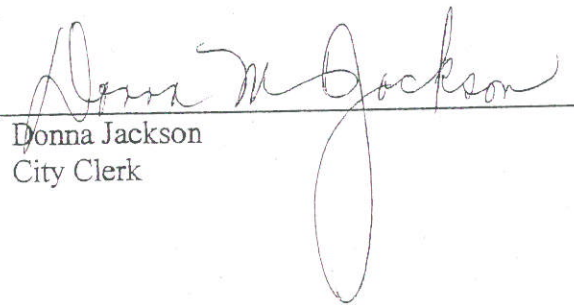 Donna M Jackson
Donna Jackson
City Clerk